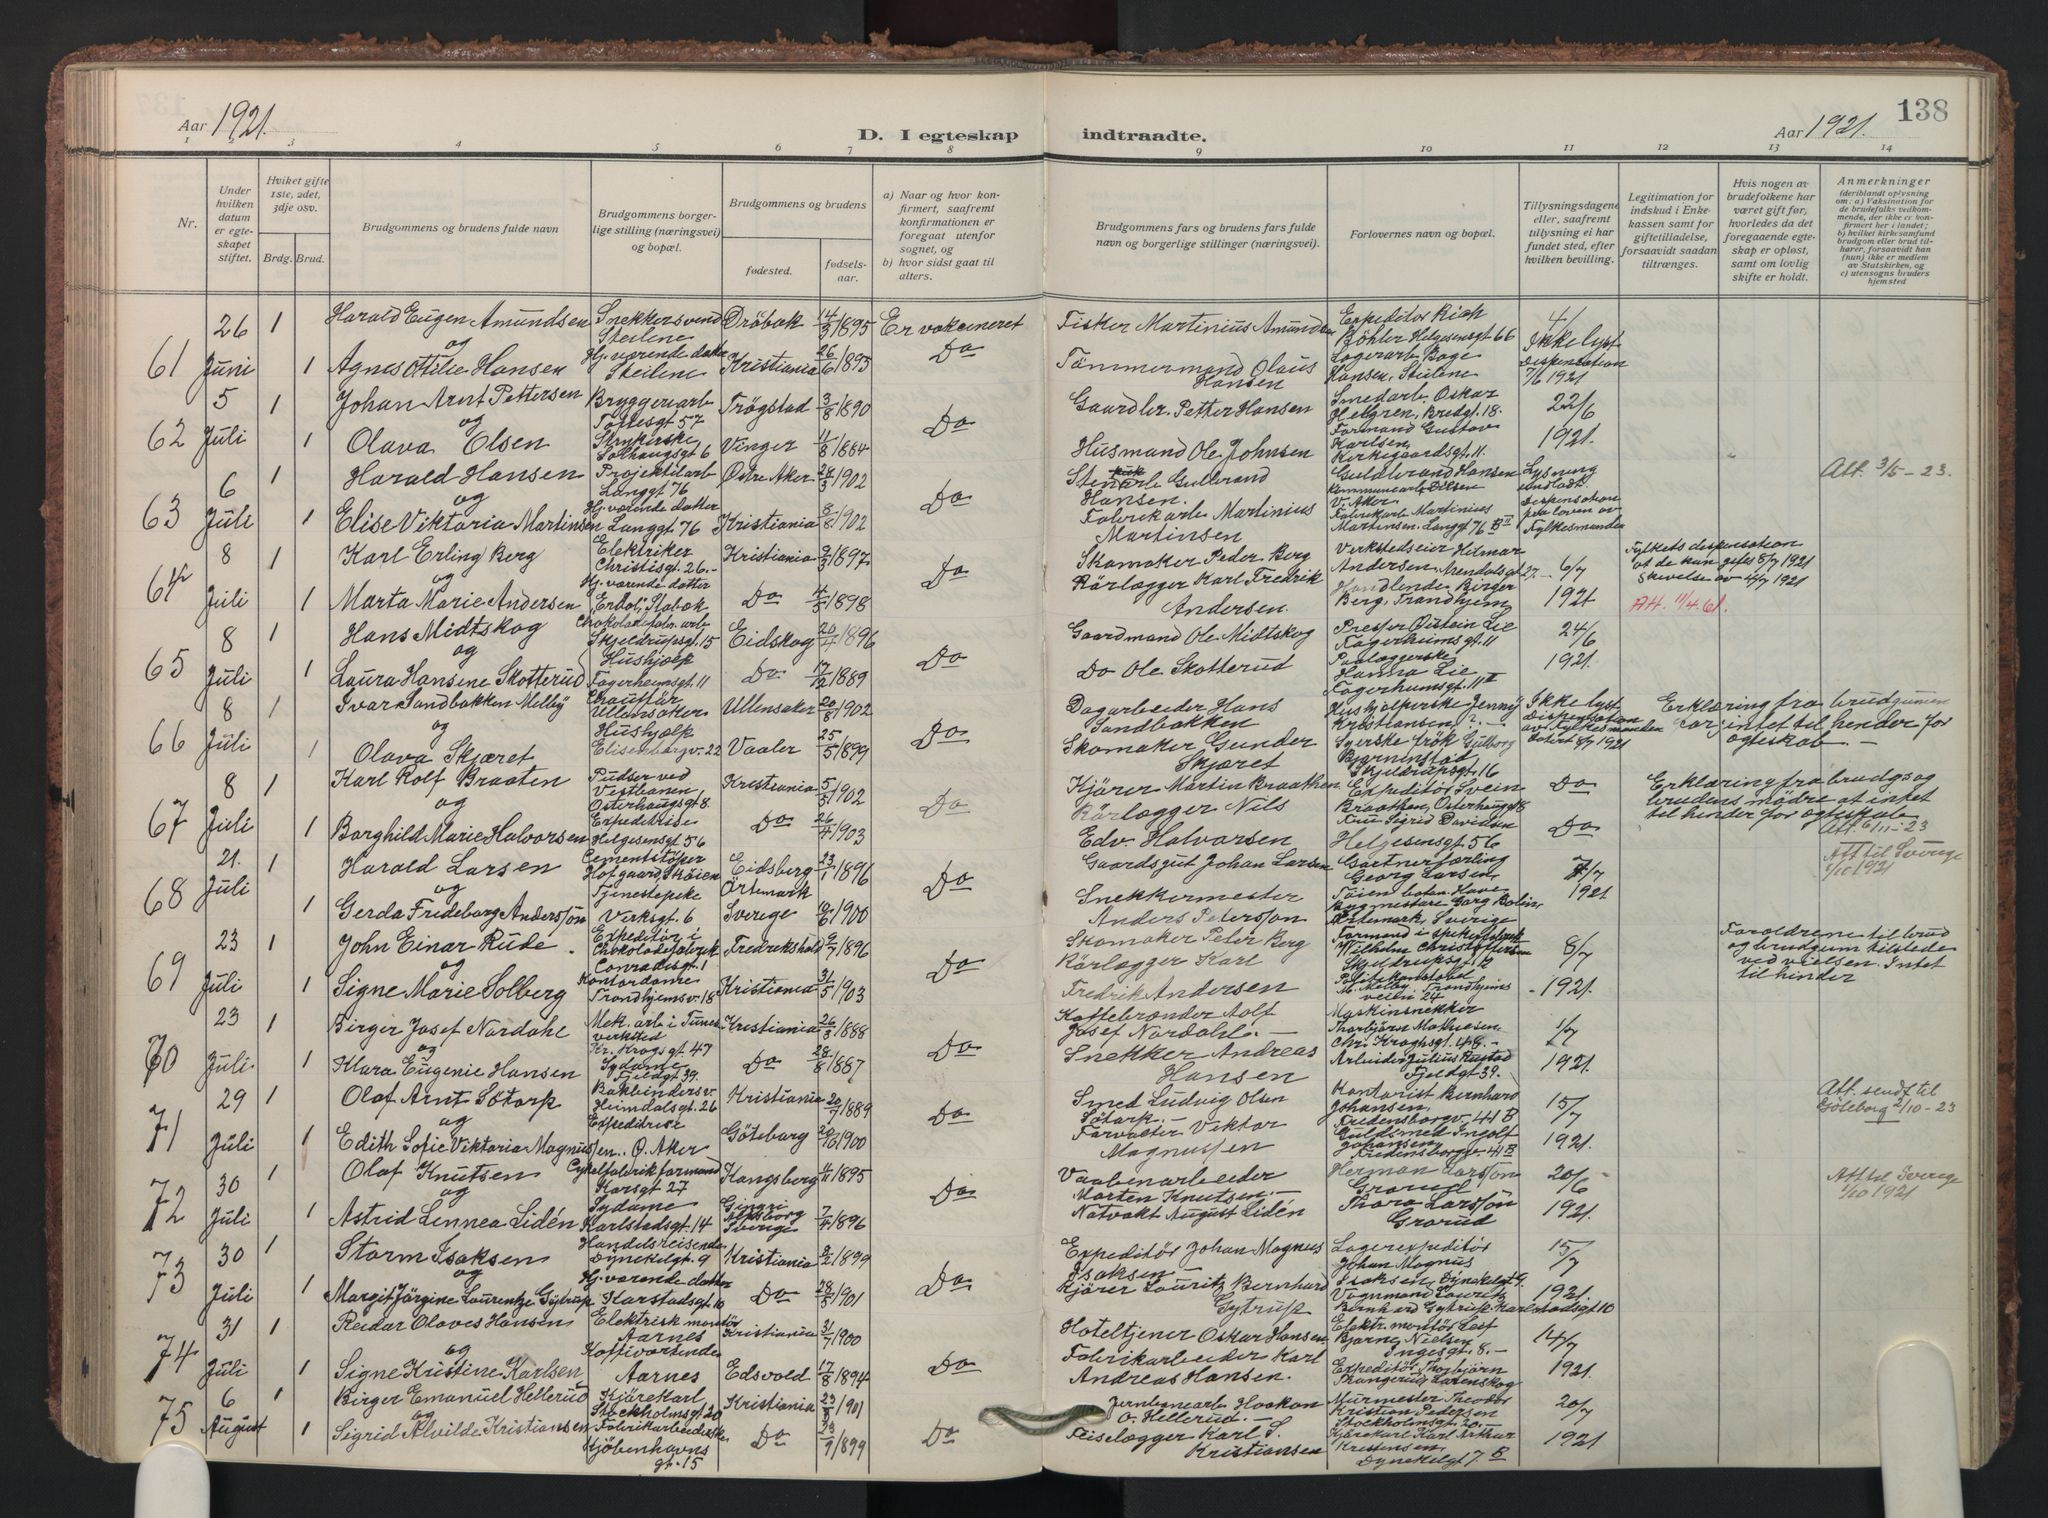 Aar 1921.
D. I egteskap indtraadte.
Aar 1921.
138
1 2 3 4 5 6 7 8 9 10 11 12 13 14
Nr.
Under hvilken datum er egteskapet stiftet.
Hviket gifte 1ste, 2det, 3dje osv.
Brdg. Brud.
Brudgommens og brudens fulde navn
Brudgommens borgerlige stilling (næringsvei) og bopæl.
Brudgommens og brudens
fødested.
fødselsaar.
a) Naar og hvor konfirmert, saafremt konfirmationen er foregaat utenfor sognet, og
b) hvor sidst gaat til alters.
Brudgommens fars og brudens fars fulde navn og borgerlige stillinger (næringsvei).
Forlovernes navn og bopæl.
Tillysningsdagene eller, saafremt tillysning ei har fundet sted, efter hvilken bevilling.
Legitimation for indskud i Enkekassen samt for giftetilladelse, forsaavidt saadan tiltrænges.
Hvis nogen av brudefolkene har været gift før, hvorledes da det foregaaende egteskap er opløst, samt om lovlig skifte er holdt.
Anmerkninger
(deriblandt oplysning om: a) Vaksination for de brudefolks vedkommende, der ikke er konfirmert her i landet; b) hvilket kirkesamfund brudgom eller brud tilhører, forsaavidt han (hun) ikke er medlem av Statskirken, og c) utensogns bruders hjemsted
61 26 Juni 1 Harald Eugen Amundsen Snekkersvend Steilene Drøbak 14/3 1895 Er vakcineret Fisker Martinius Amundsen Expeditør Rich Bøhler Helgesensgt 66 Ikke lyst
og
1 Agnes Ottilie Hansen Hj. værende datter Steilene Kristiania 26/6 1895 Do Tømmermand Olaus Hansen Hansen, Steilene Dispensation 7/6 1921
62 5 Juli 1 Johan Arnt Pettersen Bryggeriarb Toftesgt 57 Trøgstad 3/8 1890 Gaardbr. Petter Hansen Smedarb. Oskar Helgren, Bredgt. 18. 22/6
og
1 Olava Olsen Solhaugsgt 6 Vinger 11/8 1884 Do Husmand Ole Johnsen Formand Gustav Karlsen Kirkegaardsgt. 11 1921
63 6 Juli 1 Harald Hansen Projektilarb Langgt 76 Østre Aker 24/3 1902 Gulbrand Hansen. Guldbrand Hansen V. Aker Lysning undladt Att. 3/5-23.
og
1 Elise Viktoria Martinsen Hj. værende datter Langgt 76 Kristiania 8/8 1902 Do Fabrikarb Martinius Martinsen Fabrikarb Martinius Martinsen, Langgt 76 B II Dispensation fra loven av Fylkesmanden
64 8 Juli 1 Karl Erling Berg Elektriker Christiesgt. 26. Kristiania 2/3 1897 Skomaker Peder Berg Verkstedseier Hilmar Andersen, Arendalsgt 27. 6/7 Fylkets dispensation at de kan giftes 8/7 1921 Skrivelse av 4/7 1921
og
1 Marta Marie Andersen Hj. værende datter Stabæk Do 4/5 1898 Do Rørlægger Karl Fredrik Andersen. Handlende Birger Berg, Trondhjem 1921 Att. 11/4.61.
65 8 Juli 1 Hans Midtskog Chokoladefabr. arb Skjeldrupsgt. 15 Eidskog 20/4 1896 Gaardmand Ole Midtskog Presser Øistein Lie Fagerheimsgt. 11 24/6
og
1 Laura Hansene Skotterud Hushjælp Fagerheimsgt. 11 Do. 17/12 1889 Do Do Ole Skotterud Paalæggerske Hanna Lie Fagerheimsgt. 11 II 1921
66 8 Juli 1 Ivar Sandbakken Melby Chauffør Ullensaker Ullensaker 20/8 1902 Dagarbeider Hans Sandbakken Hushjælperske Jenny Kristiansen Ikke lyst Dispensation av Fylkesmanden datert 8/7 1921 Erklæring fra brudgummens far, intet til hender for ægteskab. —
og
1 Olava Skjæret Hushjælp Elisenbergv. 22 Vaaler 25/5 1899 Do Skomaker Gunder Skjæret Syerske frøk Gulborg Bjørninstad Skjeldrupsgt. 16
67 8 Juli 1 Karl Rolf Braaten Pudser ved Vestbanen Østerhausgt 8. Kristiania 5/5 1902 Kjører Martin Braathen Expeditør Svein Braathen, Østerhausgt 8 Do Erklæring fra brudgs og brudens mødre at intet til hinder for ægteskab
og
1 Borghild Marie Halvorsen Expeditrise Helgesensgt 56 Do 26/4 1903 Do Rørlægger Nils Edv. Halvorsen Fru Sigrid Davidsen Helgesensgt 56 Do Att. 6/11-23
68 21. Juli 1 Harald Larsen Cementstøper Hofgaard, Skøien Eidsberg 23/1 1896 Gaardsgut Johan Larsen Gartnerlærling Georg Larsen Tøien botan. Have 7/7 1921 Att til Sverige 1/10 1921
og
1 Gerda Frideborg Andersson Tjenestepike Verksgt. 6 Örtemark Sverige 10/6 1900 Do Snekkermester Anders Petersson Byggmestare Georg Bolin Sverige
69 23 Juli 1 John Einar Rude Expeditør i Chokoladefabrik Conradisgt. 1 Fredrikshald 9/7 1896 Skomaker Peter Berg Wilhelm Christoffersen Skjeldrupsgt. 12 8/7 Forældrene til brud og brudgum tilstede ved vielsen. Intet til hinder
og
1 Signe Marie Solberg Kontordame Trondhjemsv. 18 Kristiania 31/5 1903 Do Rørlægger Karl Fredrik Andersen M. Melby. Trondhjemsveien 24 1921.
70 23 Juli 1 Birger Josef Nordahl Mek. arb i Tunes verksted Kr. Krogsgt. 47 Kristiania 26/3 1888 Kaffebrænder Adolf Josef Nordahl. — Maskinsnekker Thorbjørn Mathiesen Chr. Kroghsgt. 48. 1/7
og
1 Klara Eugenie Hansen Sydame Fjeldgt 39. Do 28/8 1887 Do Snekker Andreas Hansen Arbeider Julius Rustad Fjeldgt 39. 1921.
71 29 Juli 1 Olaf Arnt Søtorp Bokbindersv. Heimdalsgt. 26 Kristiania 20/7 1889 Smed Ludvig Olsen Søtorp. — Kontorist Bernhard Johansen. Fredensborgv. 41 B 15/7 Att. sendt til Göteborg 2/10-23
og
1 Edith Sofie Viktoria Magnussen. Expeditrise Ø. Aker Göteborg 20/10 1900 Do Forvalter Viktor Magnussen Guldsmed Ingolf Johansen Fredensborgv. 41 B 1921.
72 30 Juli 1 Olaf Knutsen Cykelfabrikformand Korsgt 27 Kongsberg 4/11 1895 Vaabenarbeider Morten Knutsen. — Herman Larsson Grorud 20/6 Att til Sverige 1/10 1921
og
1 Astrid Linnea Lidén Sydame Karlstadsgt. 14 Gingri Älfsborg Sverige 7/4 1896 Do Natvakt August Lidén Thora Larsson Grorud 1921.
73 30 Juli 1 Storm Isaksen Handelsreisende Dynekilgt. 9 Kristiania 9/2 1899 Expeditør Johan Magnus Isaksen — Lagerexpeditør Johan Magnus Isaksen, Dynekilgt 9. 15/7
og
1 Margit Jørgine Laurentze Gytrup Hj. værende datter Karstadsgt. 10 Do 28/8 1901 Do Kjører Lauritz Bernhard Gytrup Vognmand Lauritz Bernhard Gytrup, Karlstadsgt 10 1921.
74 31 Juli 1 Reidar Olaves Hansen Elektrisk montør Aarnes Kristiania 31/7 1900 Hoteltjener Oskar Hansen Elektr. montør Leif Bjarne Nielsen Ingesgt. 8. — 14/7
og
1 Signe Kristine Karlsen Aarnes Edsvold 17/8 1894 Do Fabrikarbeider Karl Andreas Hansen. Expeditør Thorbjørn Thangerud, Lørenskog 1921.
75 6 August 1 Birger Emanuel Hellerud Kjørekarl Stockholmsgt. 20 Kristiania 23/8 1901 Jernbanearb Haakon O. Hellerud. — Murmester Theodor Kristian Pedersen Stockholmsgt. 20. — 20/7
og
1 Sigrid Alvilde Kristiansen Fabrikarbeiderske Kjøbenhavnsgt. 15 Do 23/9 1899 Do Feiselægger Karl S. Kristiansen Kjørekarl Karl Arthur Kristensen Dynekilgt 7. B 1921